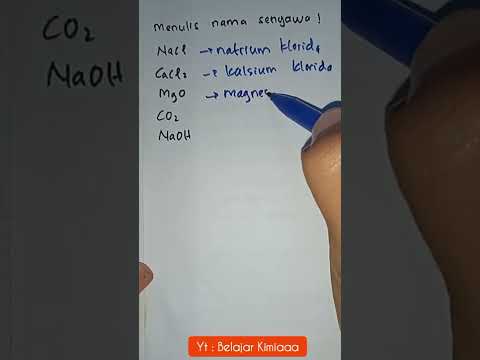 Menulis nama senyawa !
NaCl → natrium klorida
CaCl2 → kalsium klorida
MgO → magnes
CO2
NaOH
CO2
NaOH
Yt : Belajar Kimiaaa